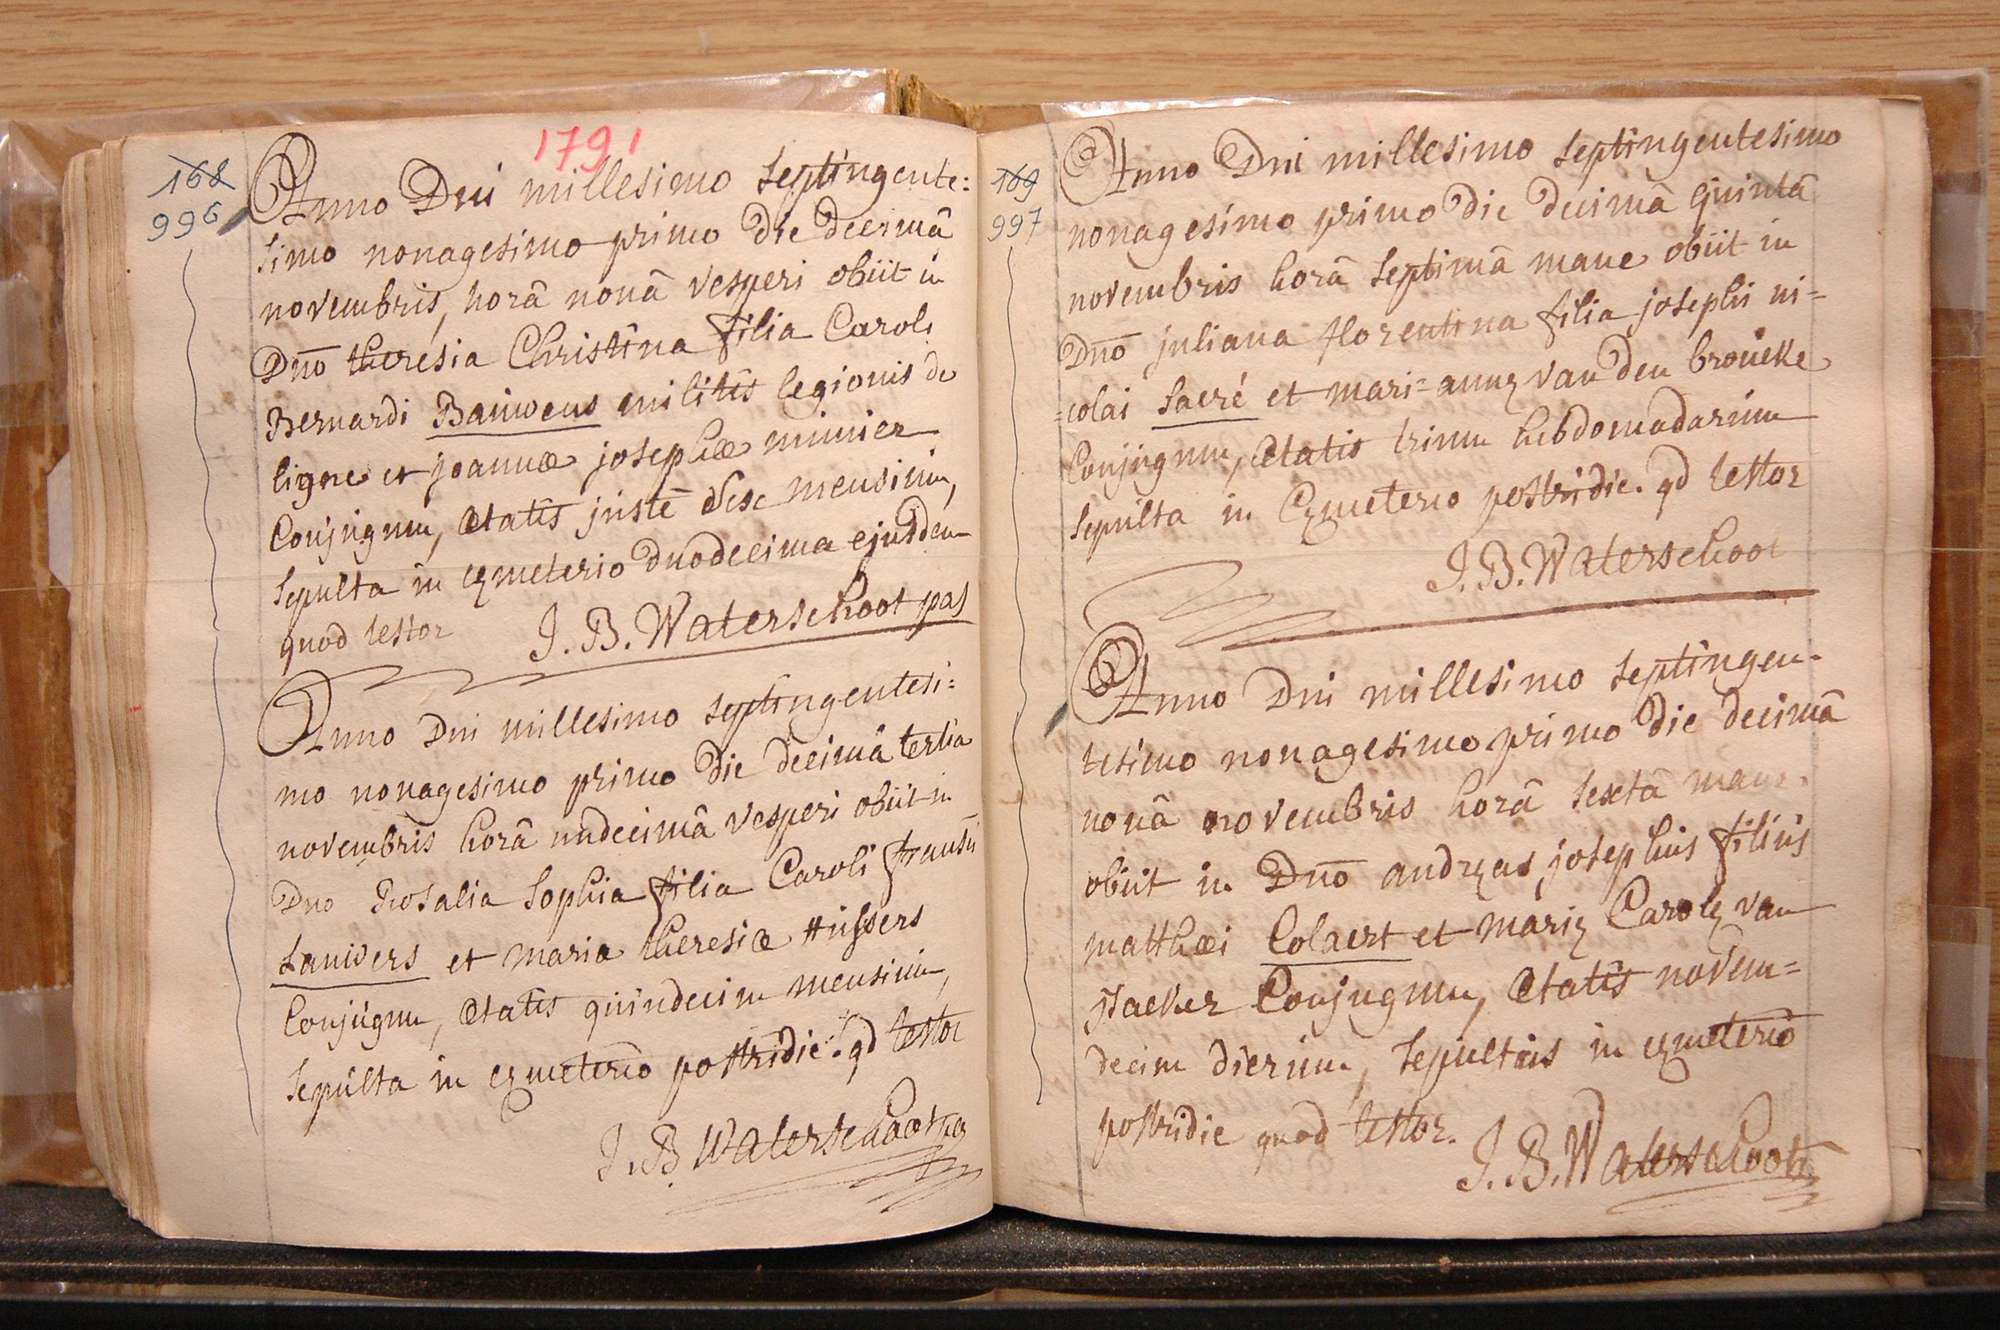 1791
168
996
Anno Dni millesimo septingente=
simo nonagesimo primo die decimâ
novembris, horâ nonâ vesperi obiit in
Dno theresia Christina filia Caroli
Bernardi Bauwens militis legionis de
ligne et joannæ josephæ minier
Conjugum, ætatis justè sex mensium,
sepulta in cæmeterio duodecima ejusdem
quod testor J. B. Waterschoot pas
Anno Dni millesimo septingentesi=
mo nonagesimo primo die decimâ tertia
novembris horâ undecimâ vesperi obiit in
Dno Rosalia Sophia filia Caroli
Lauwers et maria theresiæ Hussers
Conjugum, ætatis quindecim mensium,
sepulta in cæmeterio postridie. qd testor
J. B. Waterschoot pas
169
997
Anno Dni millesimo septingentesimo
nonagesimo primo die decimâ quintâ
novembris horâ septimâ mane obiit in
Dno juliana florentina filia josephi ni=
=colai Sacré et mari=annæ van den broucke
Conjugum, ætatis trium hebdomadarum
sepulta in Cæmeterio postridie. qd testor
J. B. Waterschoot
Anno Dni millesimo septingen=
tesimo nonagesimo primo die decimâ
nonâ novembris horâ sextâ mane
obiit in Dno andræas josephus filius
matthæi Colaert et mariæ Carolæ van
Conjugum, ætatis novem=
decim dierum, sepultus in cæmeterio
postridie quod testor.
J. B. Waterschoot